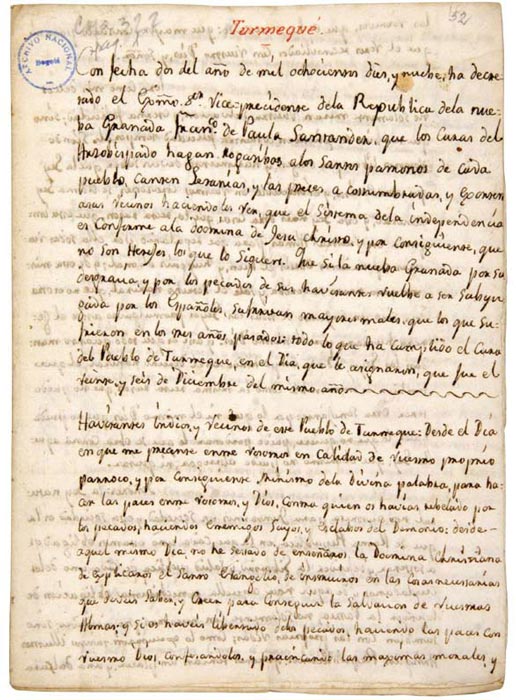 52
Turmequé.
ARCHIVO NACIONAL
Bogotá
Con fecha dos del año de mil ochociensos dies, y nuebe, ha decre-
tado el Exmo. Sor. Vice-precidense dela Republica dela nue-
ba Granada Franco. de Paula, Santander, que los Curas del
Arzobispado hagan Rogatibas, alos Santos patronos de cada
pueblo, Canten Letanias, y las preces acostumbradas, y Exorten
asus vecinos haciendoles Ver, que el Sistema dela independencia
es Conforme ala doctrina de Jesu christo, y por consiguiense, que
no son Herejes los que lo Siguen. Que Si la nueba Granada por su
desgracia, y por los pecados de sus havitantes vuelbe a ser Subyu-
gada por los Españoles, Sufriran mayores males, que los que su-
frieron en los tres años, parados: todo lo que ha cumplido el Cura
del Pueblo de Turmeque, en el Dia, que le asignaron, que fue el
veinte, y seis de Diciembre del mismo año
Havitantes Indios, y vecinos de este Pueblo de Turmeque: Desde el Dia
en que me presente entre vosotros en Calidad de vuestro proprio
parroco, y por Consiguiense Ministro dela Divina palabra, para ha-
cer las paces entre vosotros, y Dios, Contra quien os haviais rebelado por
los pecados, haciendos Enemigos Suyos, y Esclabos del Demonio: desde
aquel mismo Dia no he desado de enseñaros la Doctrina Christiana
de Explicaros el Santo Evangelio, de instruiros en las cosas necesarias
que deveis Saber, y Creer para Conseguir la Salvacion de vuestras
Almas; y Si os haveis libertado delos pecados, haciendo las paces con
vuestro Dios, Confesandolos, y practicando las maximas morales, y